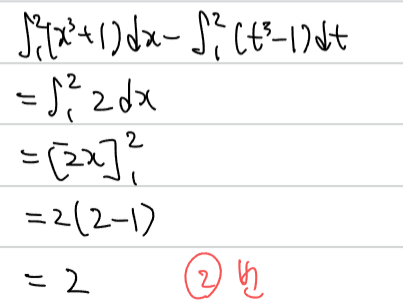 ∫₁²(x³+1)dx - ∫₁²(t³-1)dt
= ∫₁² 2 dx
= [2x]₁²
= 2(2-1)
= 2 ② 번